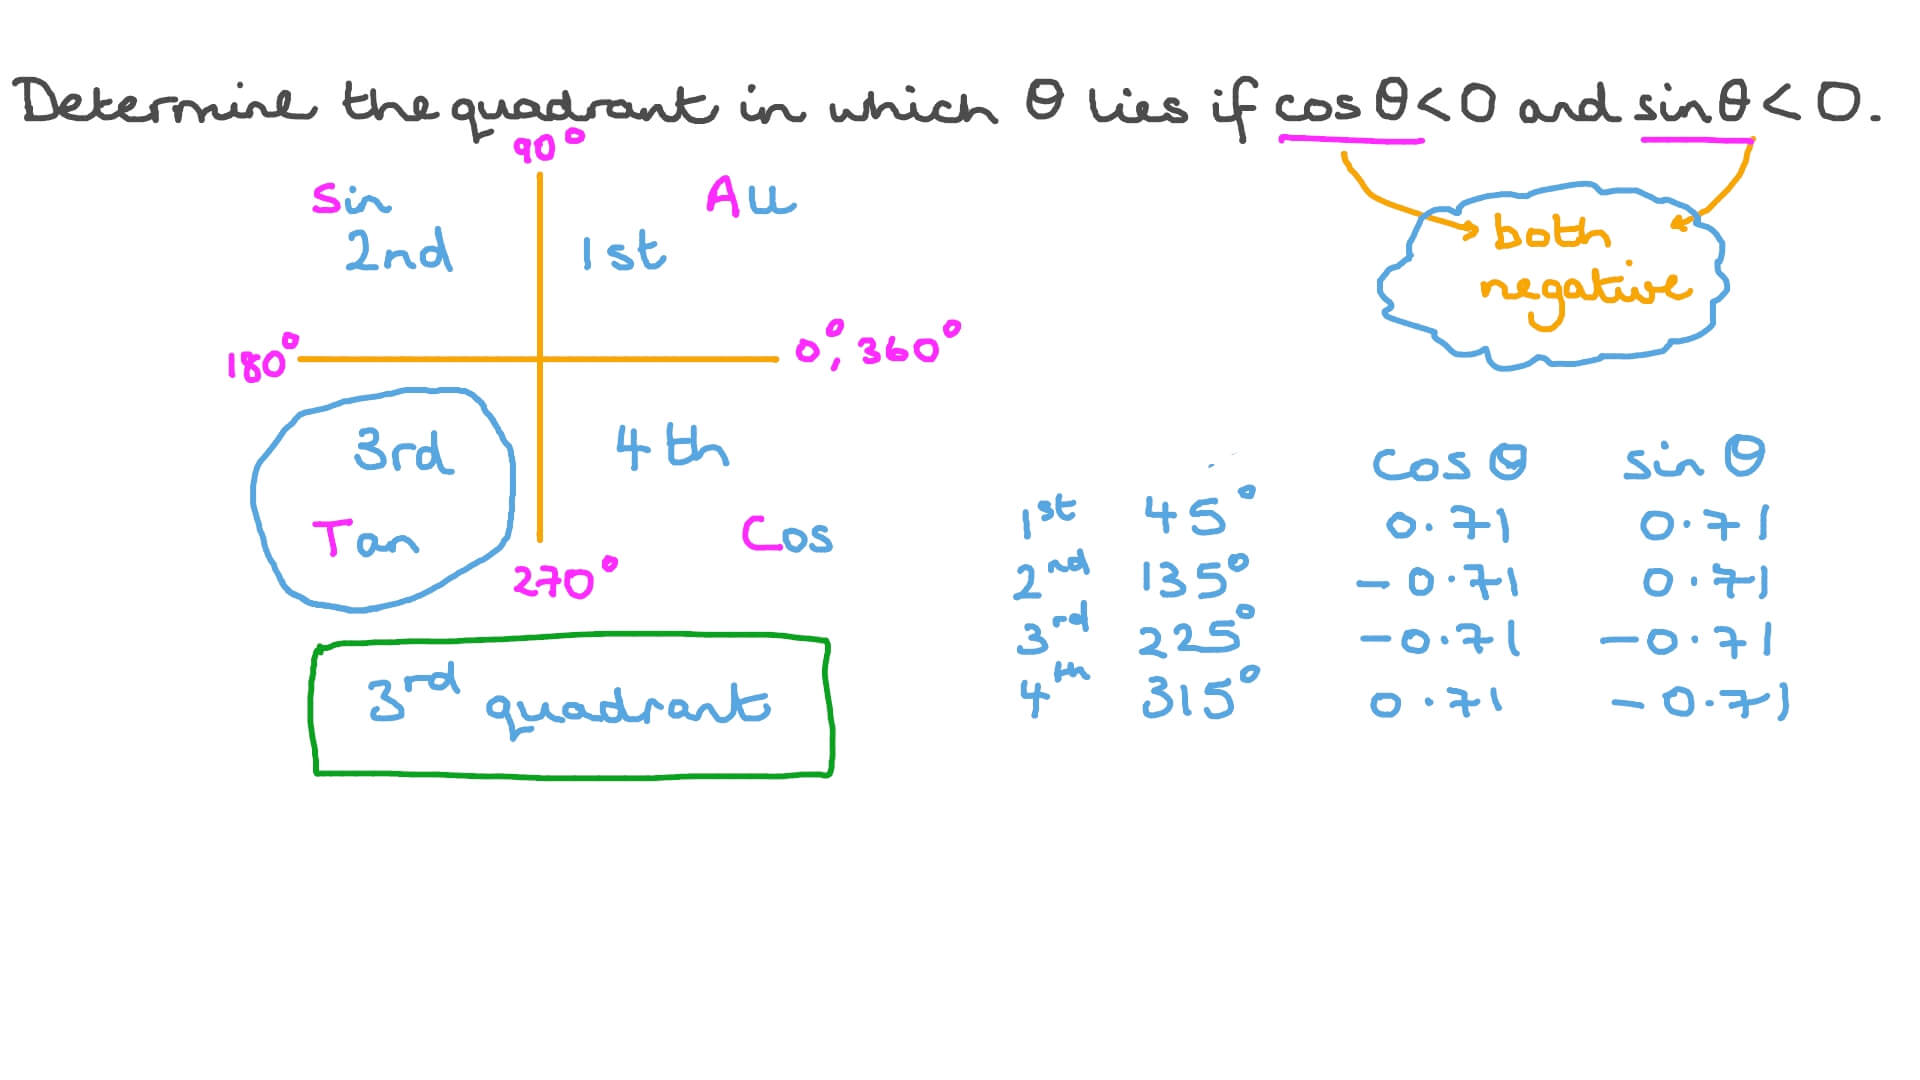 Determine the quadrant in which θ lies if cos θ < 0 and sin θ < 0.
90°
Sin
All
2nd
1st
both
negative
180°
0°, 360°
3rd
4th
Tan
Cos
270°
3rd quadrant
cos θ sin θ
1st 45° 0.71 0.71
2nd 135° -0.71 0.71
3rd 225° -0.71 -0.71
4th 315° 0.71 -0.71